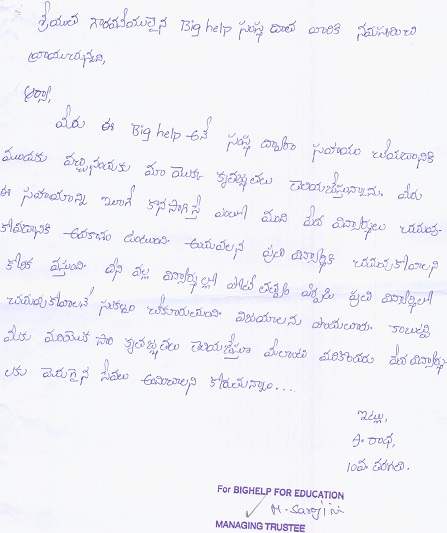 శ్రీయుత గౌరవనీయులైన Big help సంస్థ దాత వారికి నమస్కరించి
వ్రాయుచున్నది,
ఆర్యా,
మీరు ఈ Big help అనే సంస్థ ద్వారా సహాయం చేయడానికి
ముందుకు వచ్చినందుకు మా యొక్క కృతజ్ఞతలు తెలియజేస్తున్నాము. మీరు
ఈ సహాయాన్ని ఇలాగే కొనసాగిస్తే ఎంతో మంది పేద విద్యార్థులు చదువు-
కోవడానికి అవకాశం ఉంటుంది. అందువలన ప్రతి విద్యార్థికి చదువుకోవాలని
కోరిక వస్తుంది. దీని వల్ల విద్యార్థుల్లో పోటీ తత్వం ఏర్పడి ప్రతి విద్యార్థిలో
చదువుకోవాలనే సంకల్పం చేకూరుతుంది. విజయాలను పొందుతారు. కాబట్టి
మీకు మరియొక సారి కృతజ్ఞతలు తెలియజేస్తూ మీలాంటి మరికొందరు పేద విద్యార్థు-
లకు మెరుగైన సేవలు అందించాలని కోరుతున్నాం....
ఇట్లు,
A. రాధ,
10వ తరగతి.
For BIGHELP FOR EDUCATION
M. Sarojini
MANAGING TRUSTEE